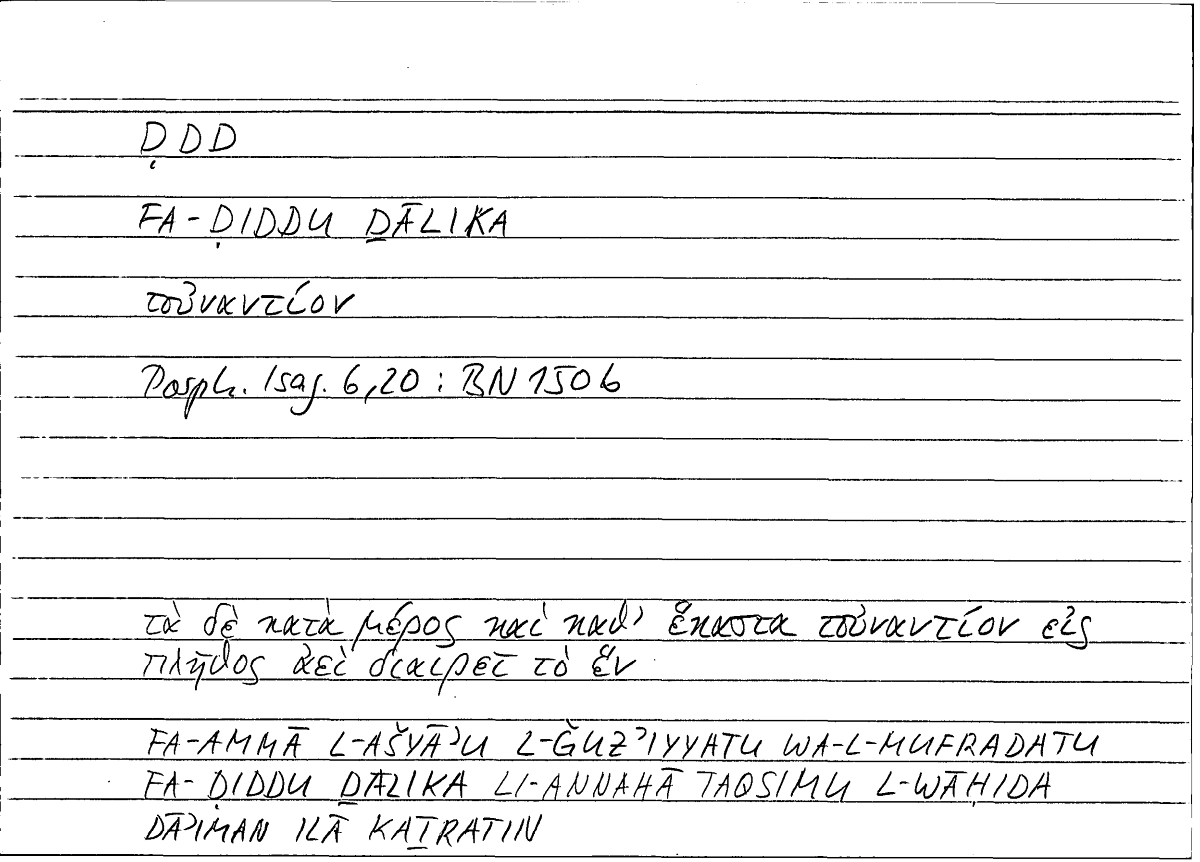 ḌDD
FA-ḌIDDU ḎĀLIKA
τοὐναντίον
Porph. Isag. 6,20 : BN 150b
τὰ δὲ κατὰ μέρος καὶ καθ’ ἕκαστα τοὐναντίον εἰς
πλῆθος ἀεὶ διαιρεῖ τὸ ἕν
FA-AMMĀ L-AŠYĀʾU L-ǦUZʾIYYATU WA-L-MUFRADATU
FA-ḌIDDU ḎĀLIKA LI-ANNAHĀ TAQSIMU L-WĀḤIDA
DĀʾIMAN ILĀ KAṮRATIN